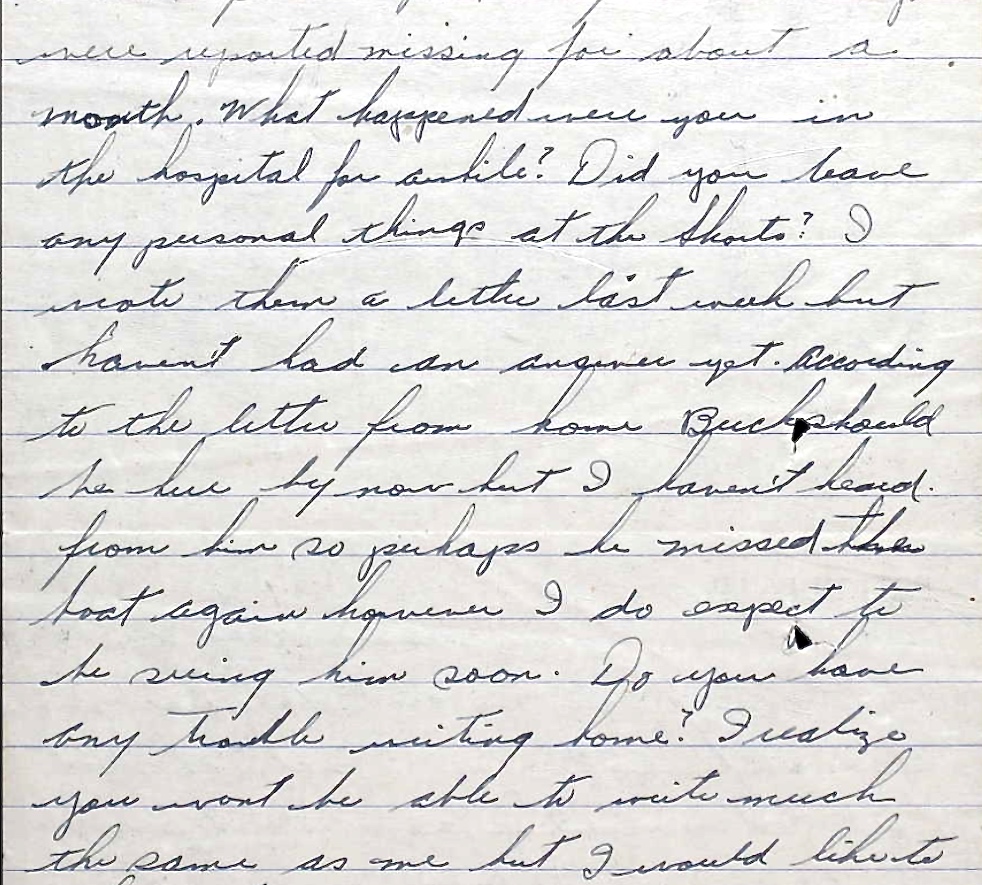 were reported missing for about a
month. What happened were you in
the hospital for awhile? Did you leave
any personal things at the Shorts? I
wrote them a letter last week but
haven't had an answer yet. According
to the letter from home Buck should
be here by now but I haven't heard.
from him so perhaps he missed the
boat again however I do expect to
be seeing him soon. Do you have
any trouble writing home? I realize
you wont be able to write much
the same as me but I would like to